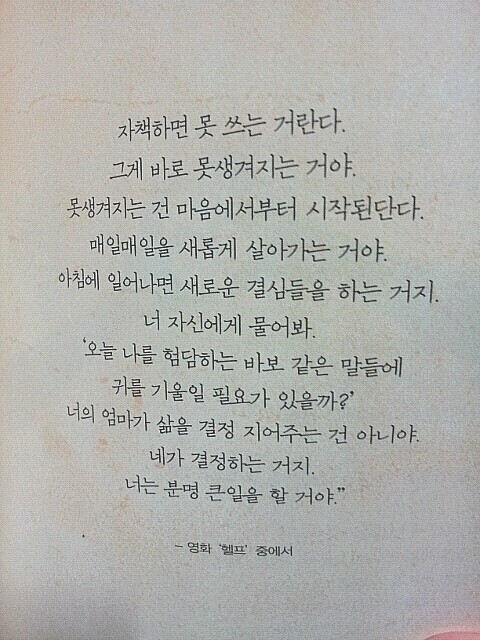 자책하면 못 쓰는 거란다.
그게 바로 못생겨지는 거야.
못생겨지는 건 마음에서부터 시작된단다.
매일매일을 새롭게 살아가는 거야.
아침에 일어나면 새로운 결심들을 하는 거지.
너 자신에게 물어봐.
‘오늘 나를 험담하는 바보 같은 말들에
귀를 기울일 필요가 있을까?’
너의 엄마가 삶을 결정 지어주는 건 아니야.
네가 결정하는 거지.
너는 분명 큰일을 할 거야.”
– 영화 ‘헬프’ 중에서